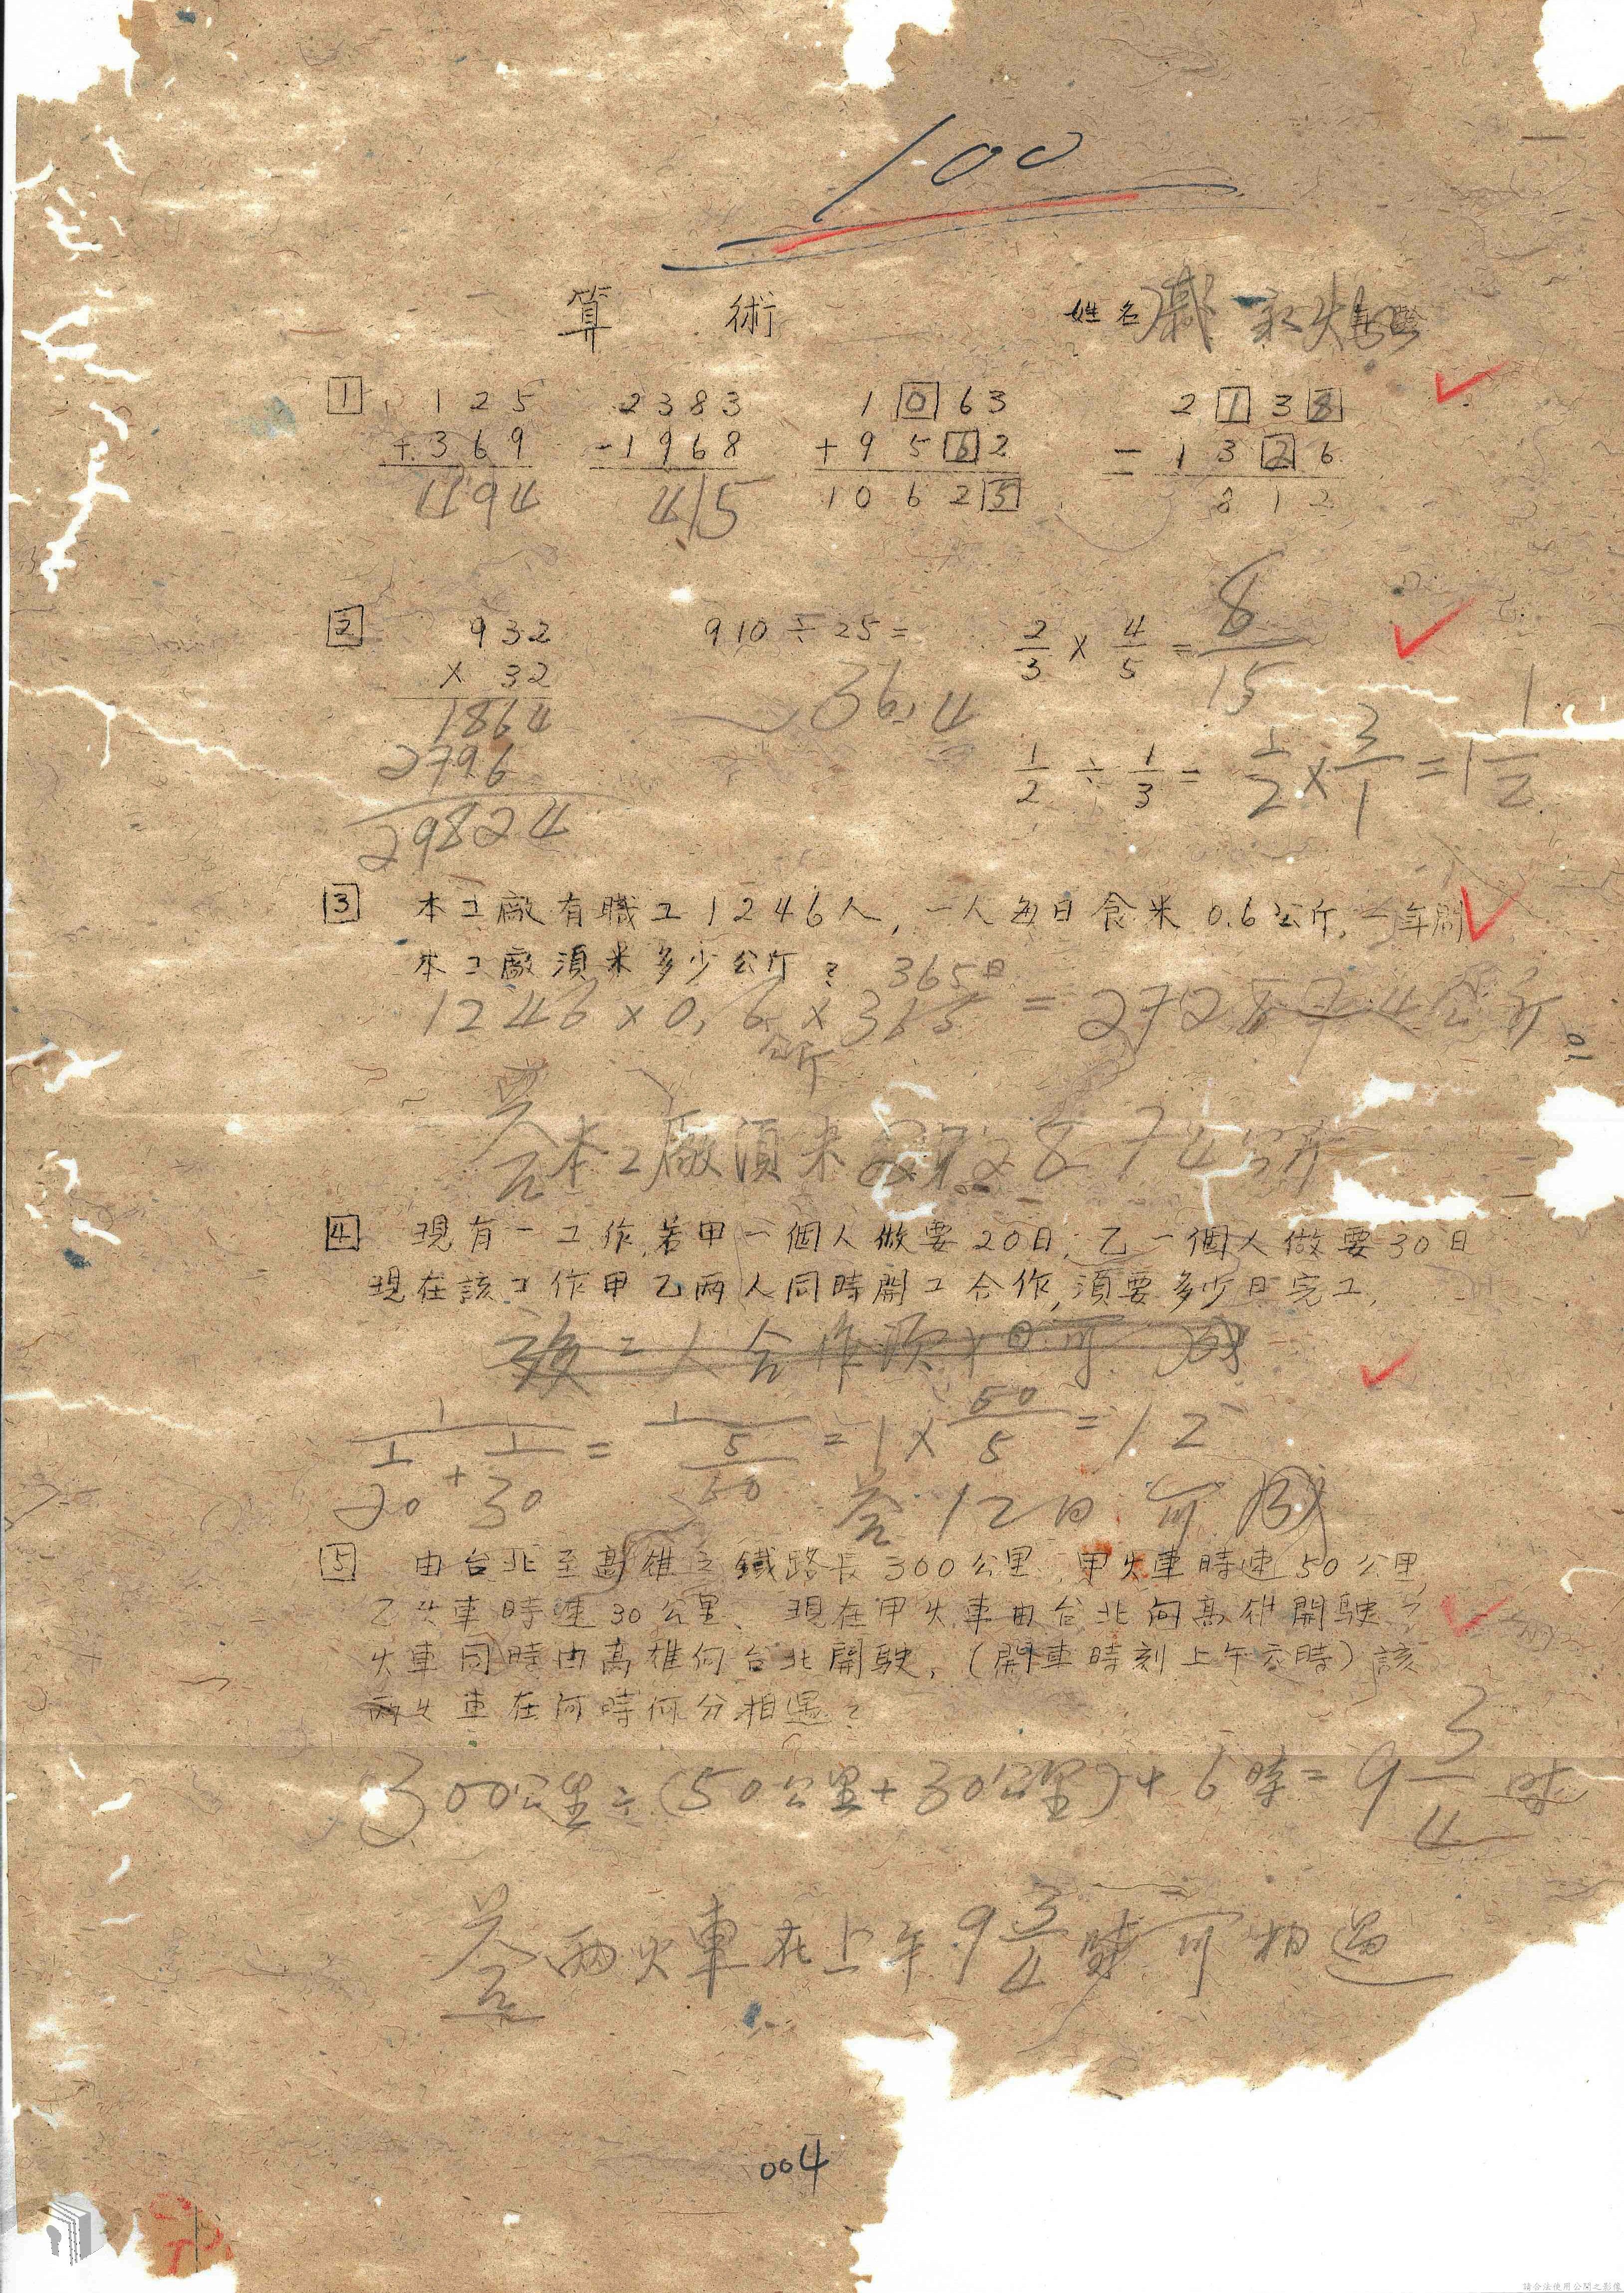 100
算 術 姓名
1 125 2383 1 0 63 2 1 3 8
+369 -1968 +95 6 2 -13 2 6
494 415 1062 5 812
2 932 910÷25= 2/3 × 4/5 = 8/15
× 32 36.4
1864
2796 1/2 ÷ 1/3 = 1/2 × 3/1 = 1 1/2
29824
3 本工廠有職工1246人,一人每日食米0.6公斤,一年間
本工廠須米多少公斤? 365日
1246×0.6×365=272874公斤
公斤
答 本工廠須米 公斤
4 現有一工作,若甲一個人做要20日;乙一個人做要30日
現在該工作甲乙兩人同時開工合作,須要多少日完工,
二人合作須 日可成
1/(1/20+1/30) = 1/(5/60) = 1×60/5 = 12
答 12日可成
5 由台北至高雄之鐵路長300公里,甲火車時速50公里
乙火車時速30公里、現在甲火車由台北向高雄開駛乙
火車同時由高雄向台北開駛,(開車時刻上午六時)該
兩火車在何時何分相遇?
300公里÷(50公里+30公里)+6時=9 3/4 時
答 兩火車在上午9 3/4 時可相遇
004
請合法使用公開之影像